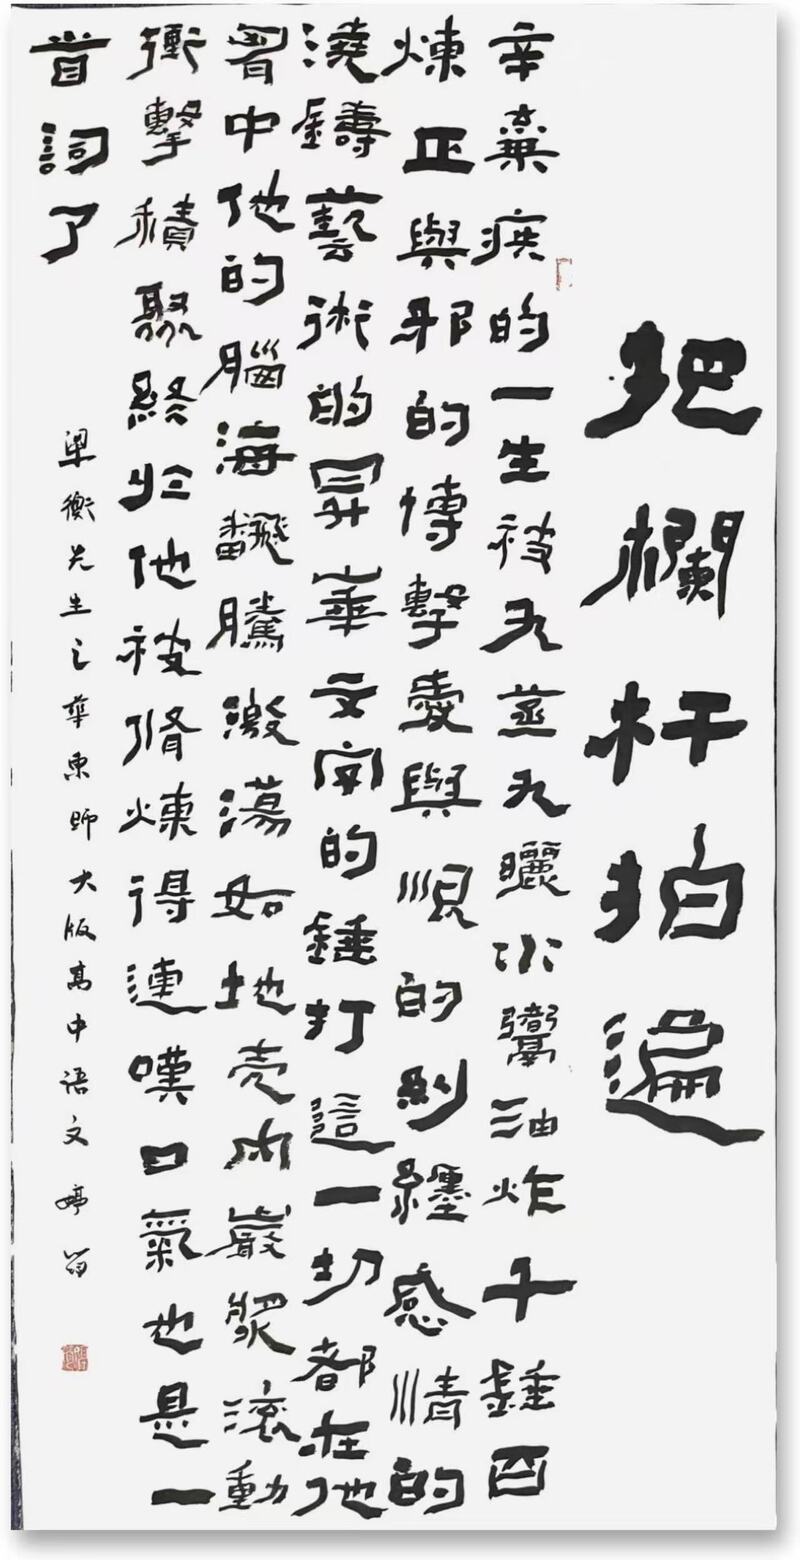 把欄杆拍遍
辛棄疾的一生被九蒸九曬水䰞油炸千錘百
煉正與邪的搏擊愛與恨的糾纏感情的
澆鑄藝術的昇華文字的錘打這一切都在他
胷中他的腦海飜騰激蕩如地壳內巖漿滾動
衝擊積聚終於他被脩煉得連嘆口氣也是一
首詞了
梁衡先生之華東師大版高中語文 婷